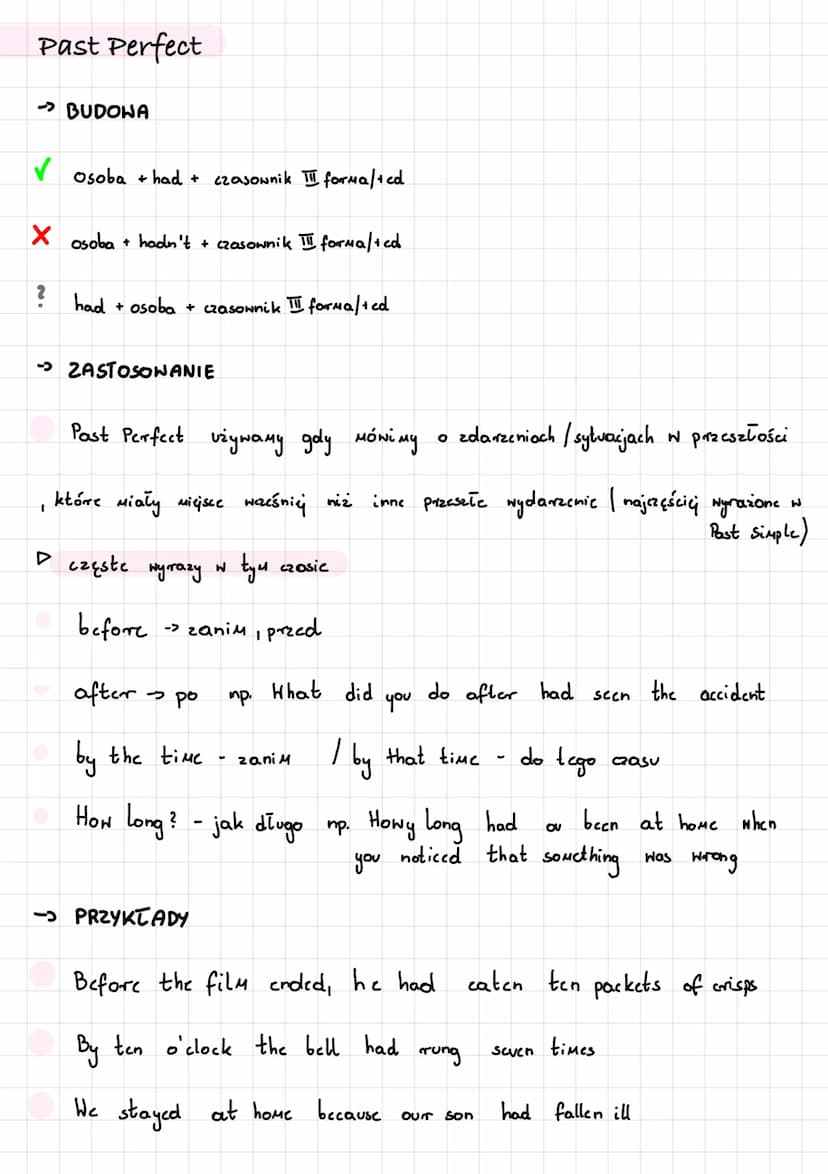 Past Perfect
→ BUDOWA
✓ osoba + had + czasownik III forma/+ed
X osoba + hadn't + czasownik III forma/+ed
? had + osoba + czasownik III forma/+ed
→ ZASTOSOWANIE
Past Perfect używamy gdy mówimy o zdarzeniach / sytuacjach w przeszłości
, które miały miejsce wcześniej niż inne przeszłe wydarzenie (najczęściej wyrażone w
Past Simple)
▷ częste wyrazy w tym czasie
before -> zanim, przed
after → po np. What did you do after had seen the accident
by the time - zanim / by that time - do tego czasu
How long? - jak długo np. Howy long had ou been at home when
you noticed that something was wrong
→ PRZYKŁADY
Before the film ended, he had eaten ten packets of crisps
By ten o'clock the bell had rung seven times
We stayed at home because our son had fallen ill